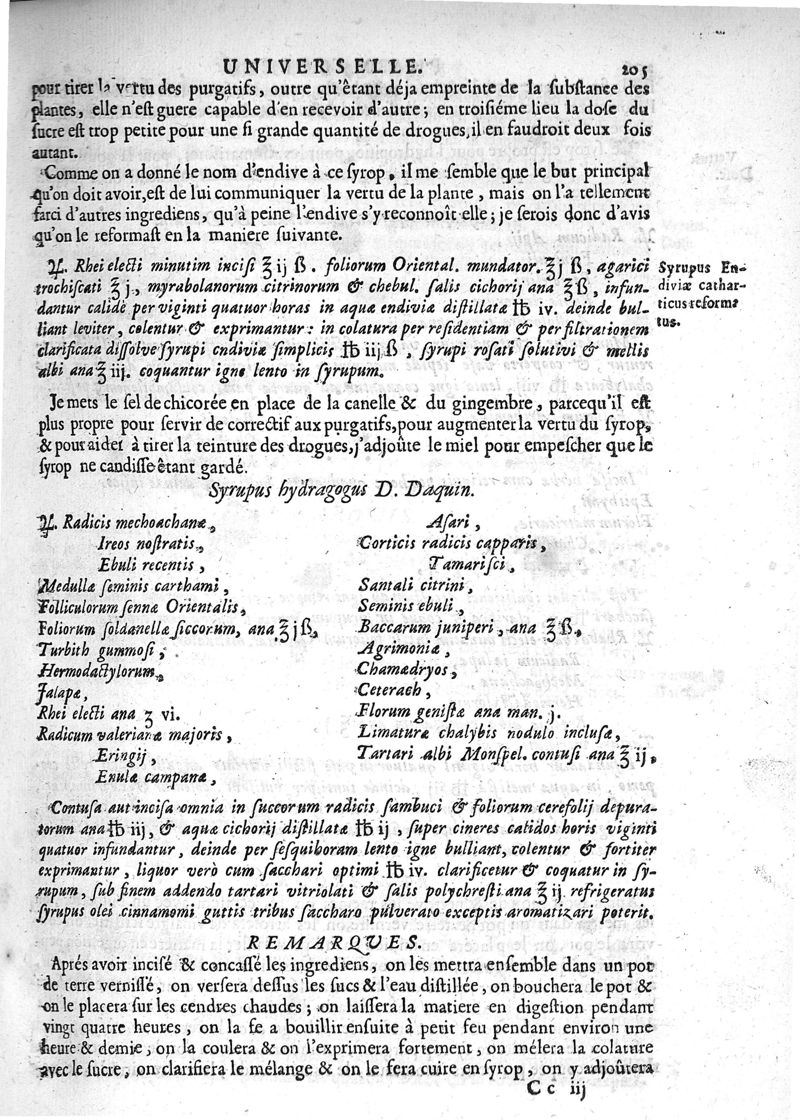 UNIVERSELLE. 205
pour tirer la vertu des purgatifs, outre qu'êtant déja empreinte de la substance des
plantes, elle n'est guere capable d'en recevoir d'autre; en troisiéme lieu la dose du
sucre est trop petite pour une si grande quantité de drogues, il en faudroit deux fois
autant.
Comme on a donné le nom d'endive à ce syrop, il me semble que le but principal
qu'on doit avoir, est de lui communiquer la vertu de la plante, mais on l'a tellement
farci d'autres ingrediens, qu'à peine l'endive s'y reconnoît elle; je serois donc d'avis
qu'on le reformast en la maniere suivante.
♃. Rhei electi minutim incisi ℥ ij ß. foliorum Oriental. mundator. ℥j ß, agarici
trochiscati ℥ j, myrabolanorum citrinorum & chebul. salis cichorij ana ℥ ß, infun-
dantur calidè per viginti quatuor horas in aquæ endiviæ distillatæ ℔ iv. deinde bul-
liant leviter, colentur & exprimantur: in colatura per residentiam & per filtrationem
clarificata dissolve syrupi endiviæ simplicis ℔ iij ß, syrupi rosati solutivi & mellis
albi ana ℥ iij. coquantur igne lento in syrupum.
Syrupus En-
diviæ cathar-
ticus reforma
tus.
Je mets le sel de chicorée en place de la canelle & du gingembre, parcequ'il est
plus propre pour servir de correctif aux purgatifs, pour augmenter la vertu du syrop,
& pour aider à tirer la teinture des drogues, j'adjoûte le miel pour empescher que le
syrop ne candisse êtant gardé.
Syrupus hydragogus D. Daquin.
♃. Radicis mechoachanæ,
Ireos nostratis,
Ebuli recentis,
Medullæ seminis carthami,
Folliculorum sennæ Orientalis,
Foliorum soldanellæ siccorum, ana ℥ j ß,
Turbith gummosi,
Hermodactylorum,
Jalapæ,
Rhei electi ana ʒ vi.
Radicum valerianæ majoris,
Eringij,
Enulæ campanæ,
Asari,
Corticis radicis capparis,
Tamarisci,
Santali citrini,
Seminis ebuli,
Baccarum juniperi, ana ℥ ß,
Agrimoniæ,
Chamædryos,
Ceterach,
Florum genistæ ana man. j.
Limaturæ chalybis nodulo inclusæ,
Tartari albi Monspel. contusi ana ℥ ij,
Contusa aut incisa omnia in succorum radicis sambuci & foliorum cerefolij depura-
torum ana ℔ iij, & aquæ cichorij distillatæ ℔ ij, super cineres calidos horis viginti
quatuor infundantur, deinde per sesquihoram lento igne bulliant, colentur & fortiter
exprimantur, liquor verò cum sacchari optimi ℔ iv. clarificetur & coquatur in sy-
rupum, sub finem addendo tartari vitriolati & salis polychresti ana ℥ ij. refrigeratus
syrupus olei cinnamomi guttis tribus saccharo pulverato exceptis aromatizari poterit.
REMARQUES.
Aprés avoir incisé & concassé les ingrediens, on les mettra ensemble dans un pot
de terre vernissé, on versera dessus les sucs & l'eau distillée, on bouchera le pot &
on le placera sur les cendres chaudes; on laissera la matiere en digestion pendant
vingt quatre heures, on la fe a bouillir ensuite à petit feu pendant environ une
heure & demie, on la coulera & on l'exprimera fortement, on mélera la colature
avec le sucre, on clarifiera le mélange & on le fera cuire en syrop, on y adjoûtera
C c iij